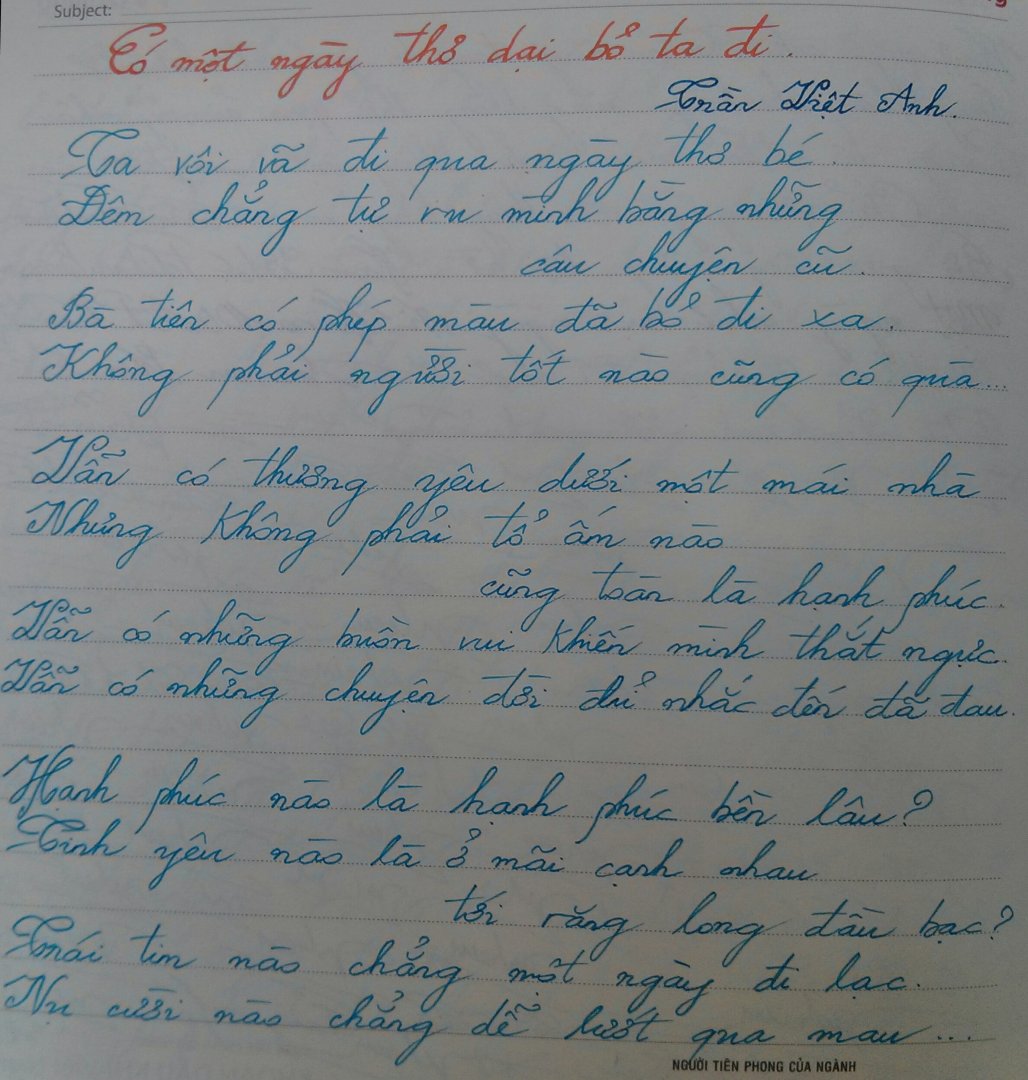 Subject:
Có một ngày thơ dại bỏ ta đi.
Trần Việt Anh.
Ta vội vã đi qua ngày thơ bé.
Đêm chẳng tự ru mình bằng những
câu chuyện cũ.
Bà tiên có phép màu đã bỏ đi xa.
Không phải người tốt nào cũng có quà...
Vẫn có thương yêu dưới một mái nhà
Nhưng không phải tổ ấm nào
cũng toàn là hạnh phúc.
Vẫn có những buồn vui khiến mình thắt ngực.
Vẫn có những chuyện đời đủ nhắc đến đã đau.
Hạnh phúc nào là hạnh phúc bền lâu?
Tình yêu nào là ở mãi cạnh nhau
tới răng long đầu bạc?
Trái tim nào chẳng một ngày đi lạc.
Nụ cười nào chẳng dễ lướt qua mau...
NGƯỜI TIÊN PHONG CỦA NGÀNH